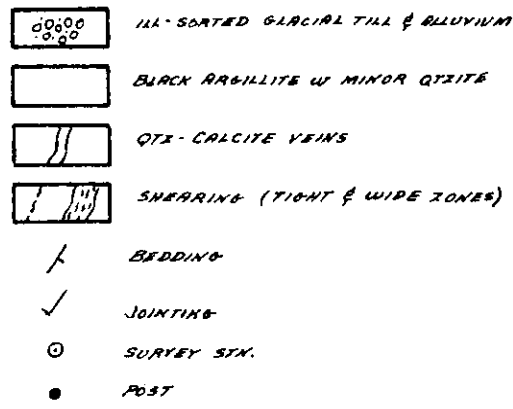 ILL-SORTED GLACIAL TILL & ALLUVIUM
BLACK ARGILLITE W MINOR QTZITE
QTZ-CALCITE VEINS
SHEARING (TIGHT & WIDE ZONES)
BEDDING
JOINTING
SURVEY STN.
POST